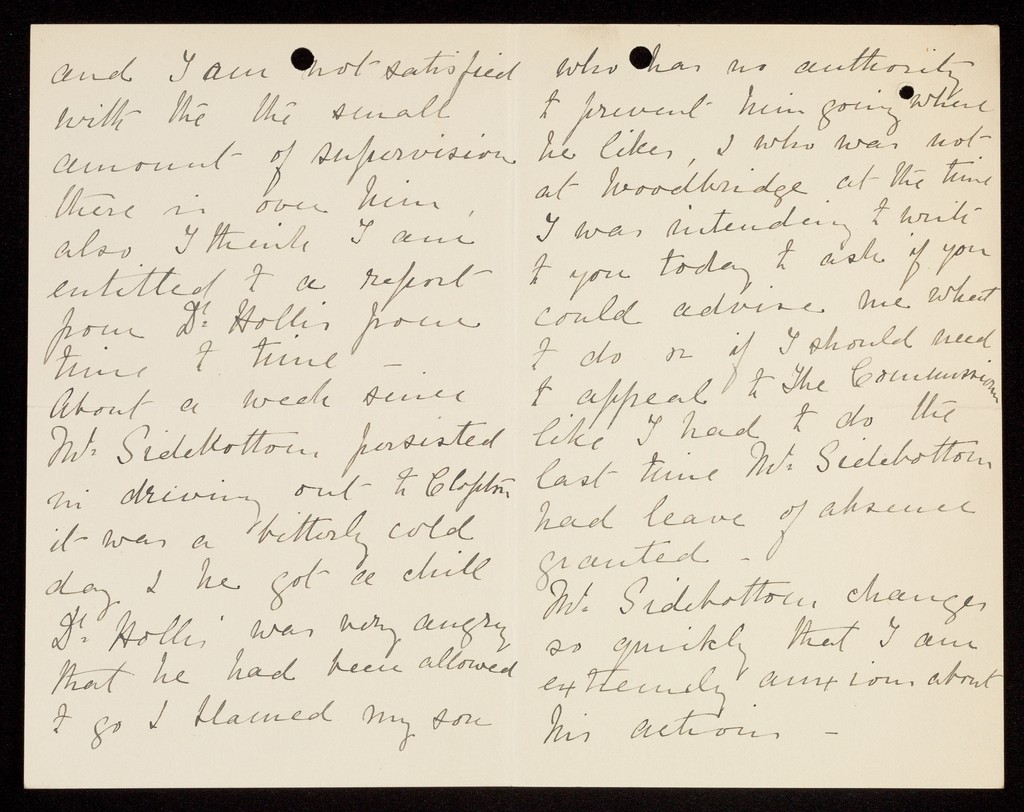 and I am not satisfied
with the the small
amount of supervision
there is over him,
also I think I am
entitled to a report
from Dr. Hollis from
time to time -
About a week since
Mr. Sidebottom persisted
in driving out to Clopton
it was a bitterly cold
day & he got a chill
Dr. Hollis was very angry
that he had been allowed
to go & blamed my son
who has no authority
to prevent him going where
he likes, & who was not
at Woodbridge at the time
I was intending to write
to you today to ask if you
could advise me what
to do or if I should need
to appeal to The Commission
like I had to do the
last time Mr. Sidebottom
had leave of absence
granted -
Mr. Sidebottom changes
so quickly that I am
extremely anxious about
his actions -